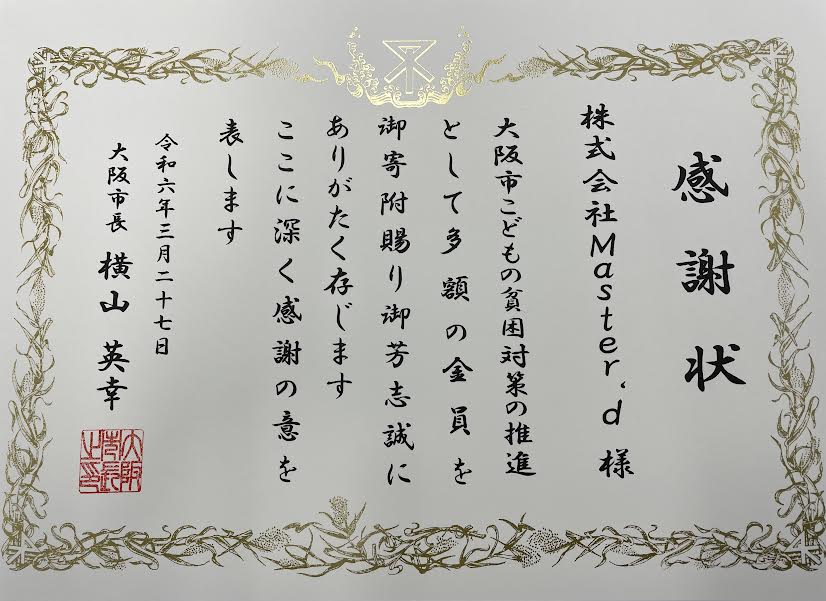 感謝状
株式会社Master.d 様
大阪市こどもの貧困対策の推進
として多額の金員を
御寄附賜り御芳志誠に
ありがたく存じます
ここに深く感謝の意を
表します
令和六年三月二十七日
大阪市長 横山 英幸
大阪市長之印